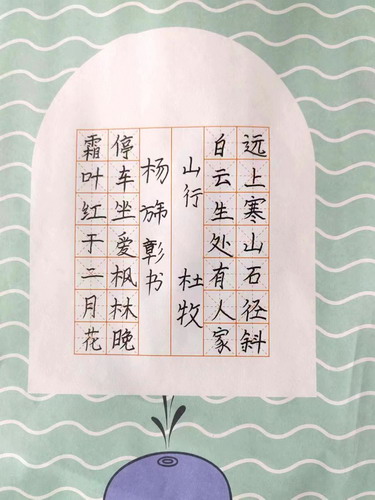 远上寒山石径斜
白云生处有人家
山行 杜牧
杨旆彰书
停车坐爱枫林晚
霜叶红于二月花